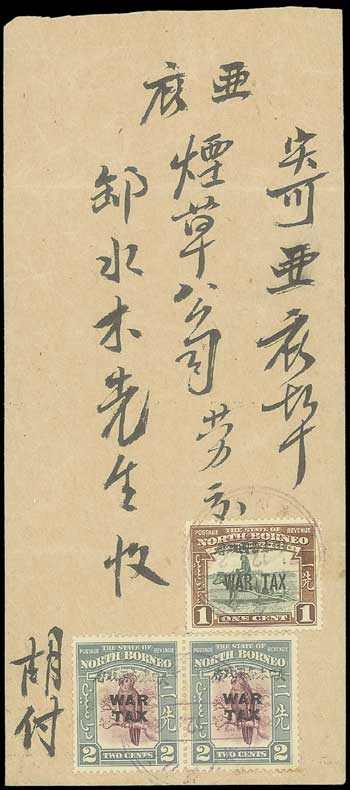 寄亞庇埠
亞庇
煙草公司勞
水木先生收
胡付
POSTAGE THE STATE OF REVENUE
NORTH BORNEO
WAR TAX
一先
1 ONE CENT 1
POSTAGE THE STATE OF REVENUE
NORTH BORNEO
WAR
TAX
二先
2 TWO CENTS 2
POSTAGE THE STATE OF REVENUE
NORTH BORNEO
WAR
TAX
二先
2 TWO CENTS 2